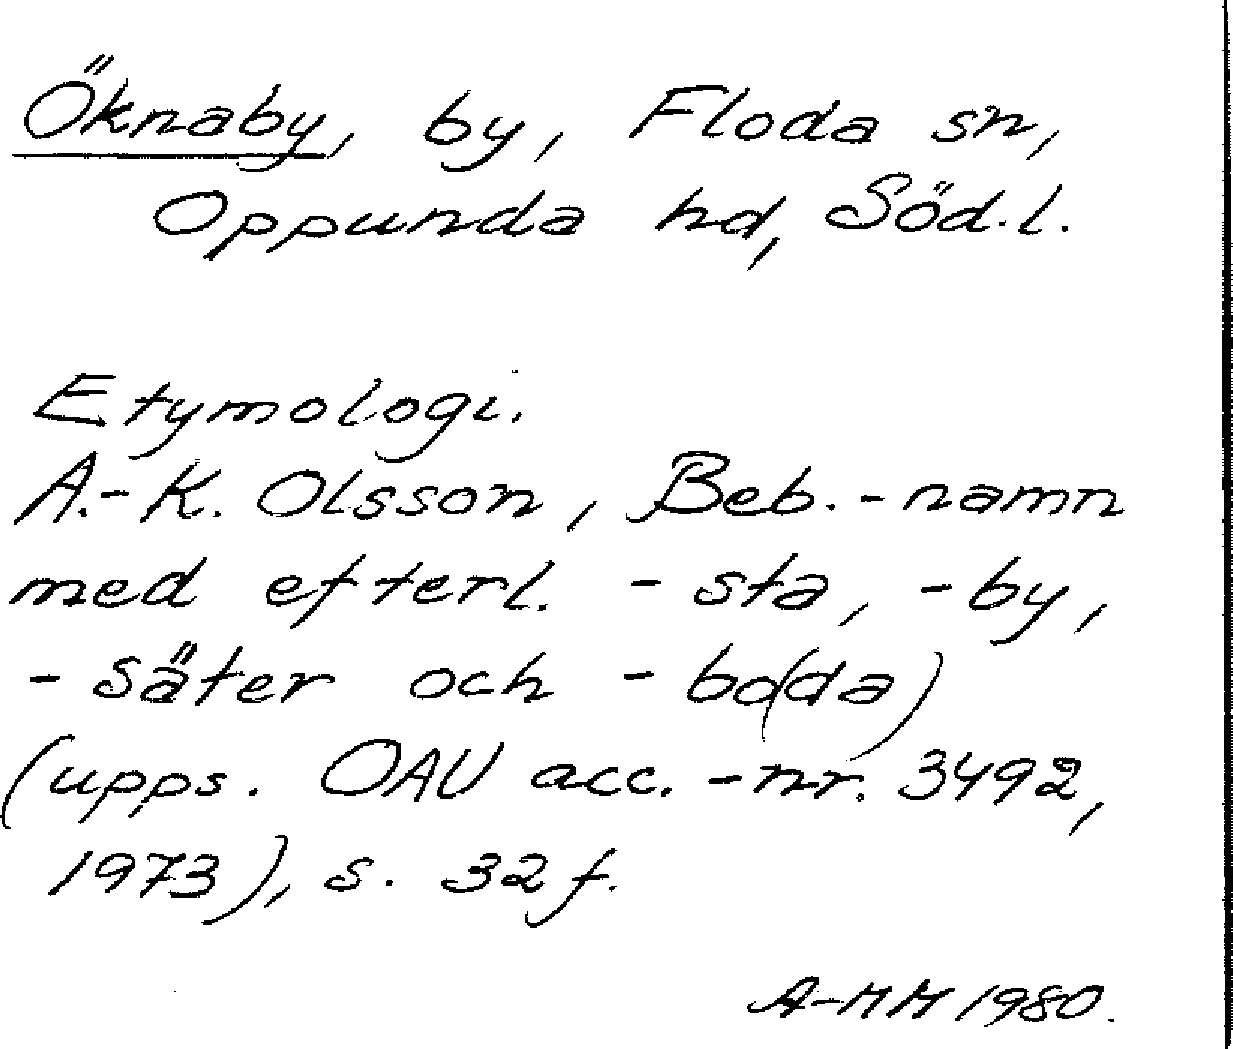 Öknaby, by, Floda sn,
Oppunda hd, Söd.l.
Etymologi.
A.-K. Olsson, Beb.-namn
med efterl. -sta, -by,
-säter och -bo(da)
(upps. OAU acc.-nr. 3492,
1973), s. 32 f.
A-MM 1980.